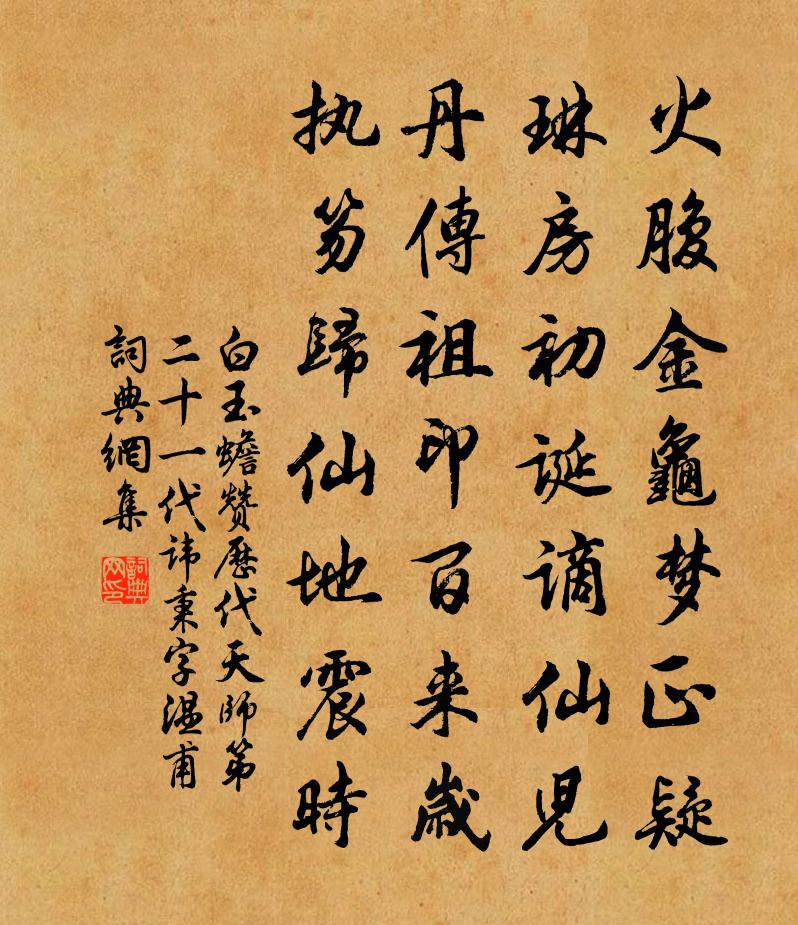 火腹金龜梦正疑
琳房初誕謫仙兒
丹傳祖印百来歲
执笏歸仙地震時
白玉蟾贊歷代天師第
二十一代諱秉字温甫
詞典網集
詞典网印